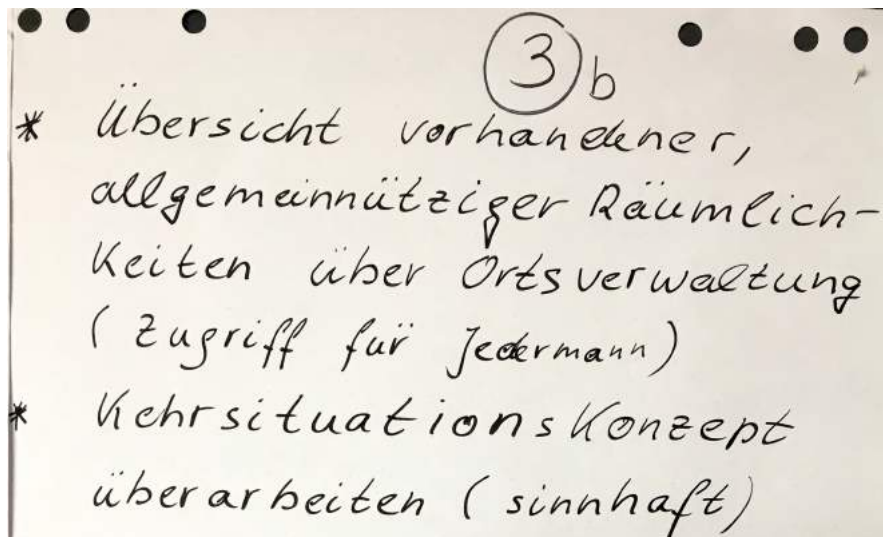 3b
* Übersicht vorhandener,
allgemeinnütziger Räumlich-
keiten über Ortsverwaltung
(Zugriff für Jedermann)
* Kehrsituationskonzept
überarbeiten (sinnhaft)